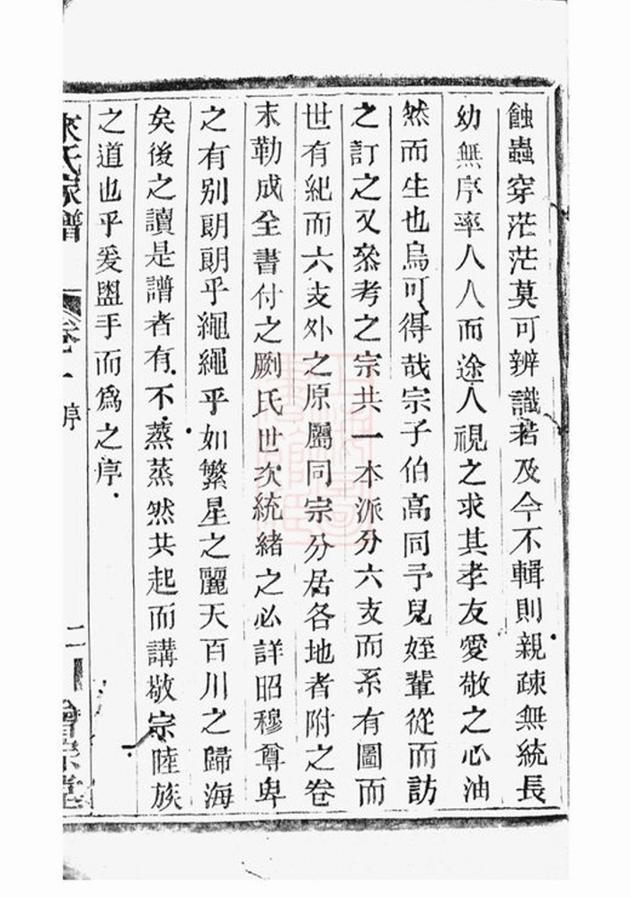 蝕蟲穿茫茫莫可辨識若及今不輯則親疎無統長
幼無序率人人而途人視之求其孝友愛敬之心油
然而生也烏可得哉宗子伯高同予兒姪輩從而訪
之訂之又叅考之宗共一本派分六支而系有圖而
世有紀而六支外之原屬同宗分居各地者附之卷
末勒成全書付之劂氏世次統緒之必詳昭穆尊卑
之有别朗朗乎繩繩乎如繁星之麗天百川之歸海
矣後之讀是譜者有不蒸蒸然共起而講敬宗陸族
之道也乎爰盥手而爲之序
氏家譜
卷一
序
二